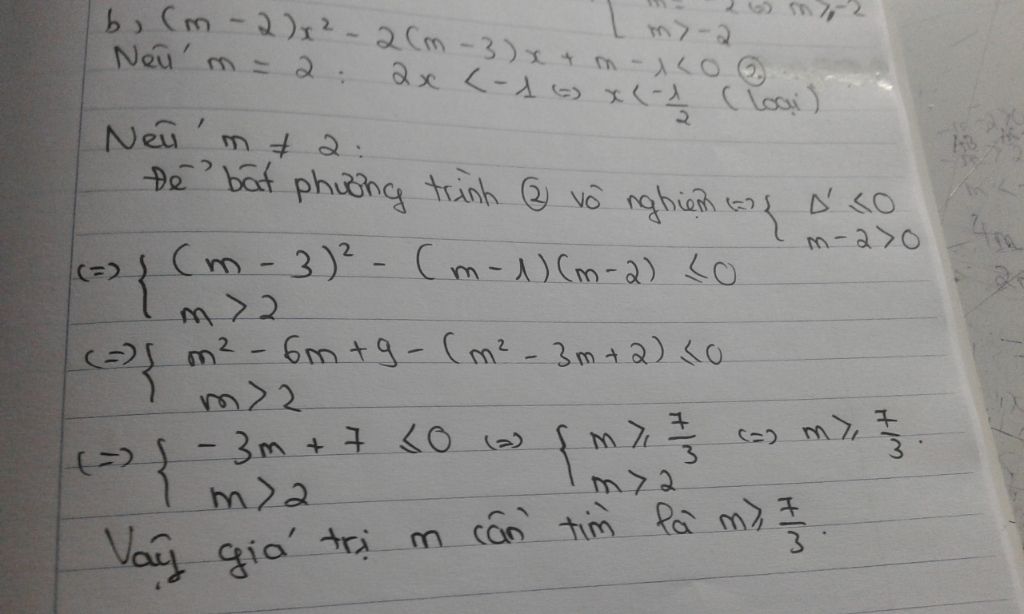 2 <=> m ≥ -2
m > -2
b, (m - 2)x² - 2(m - 3)x + m - 1 < 0 ②
Nếu m = 2 : 2x < -1 <=> x < -1/2 (loại)
Nếu m ≠ 2 :
Để bất phương trình ② vô nghiệm <=> { Δ' ≤ 0
m - 2 > 0
<=> { (m - 3)² - (m - 1)(m - 2) ≤ 0
m > 2
<=> { m² - 6m + 9 - (m² - 3m + 2) ≤ 0
m > 2
<=> { - 3m + 7 ≤ 0 <=> { m ≥ 7/3 <=> m ≥ 7/3.
m > 2 m > 2
Vậy giá trị m cần tìm là m ≥ 7/3.